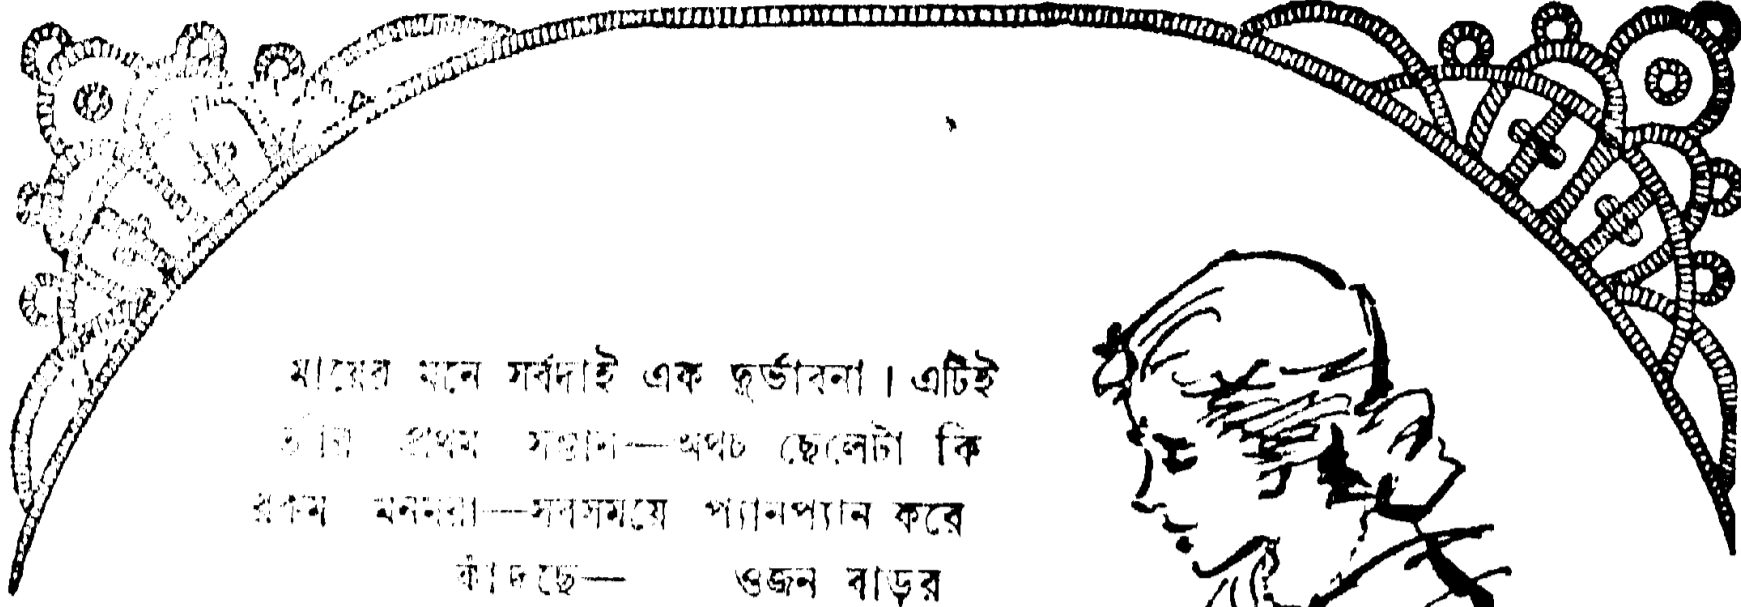 মায়ের মনে সর্বদাই এক দুর্ভাবনা। এটিই
তাঁর প্রথম সন্তান—অথচ ছেলেটা কি
রকম মনমরা—সবসময়ে প্যানপ্যান করে
কাঁদছে— ওজন বাড়র